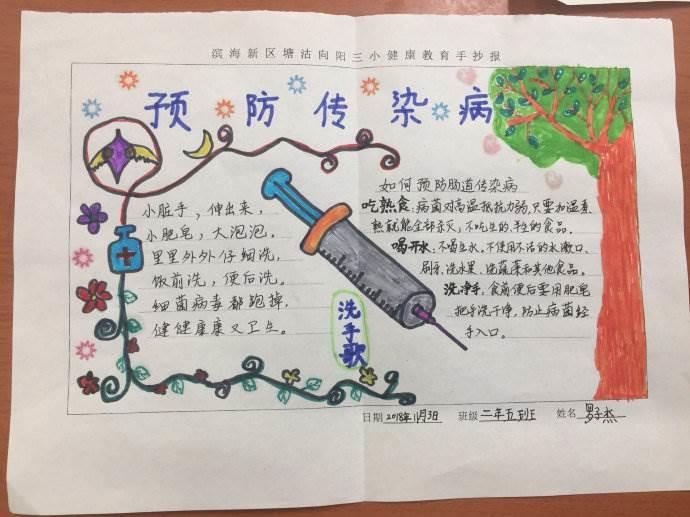 滨海新区塘沽向阳三小健康教育手抄报
预防传染病
小脏手，伸出来，
小肥皂，大泡泡。
里里外外仔细洗，
饭前洗，便后洗。
细菌病毒都跑掉，
健健康康又卫生。
洗手歌
如何预防肠道传染病
吃熟食：病菌对高温抵抗力弱，只要加温煮
熟就能全部杀灭，不吃生的、半生的食品。
喝开水，不喝生水，不使用不洁的水漱口、
刷牙、洗水果、洗蔬菜和其他食品。
洗净手，食前便后要用肥皂
把手洗干净，防止病菌经
手入口。
日期 2018年11月3日 班级 二年五班 姓名